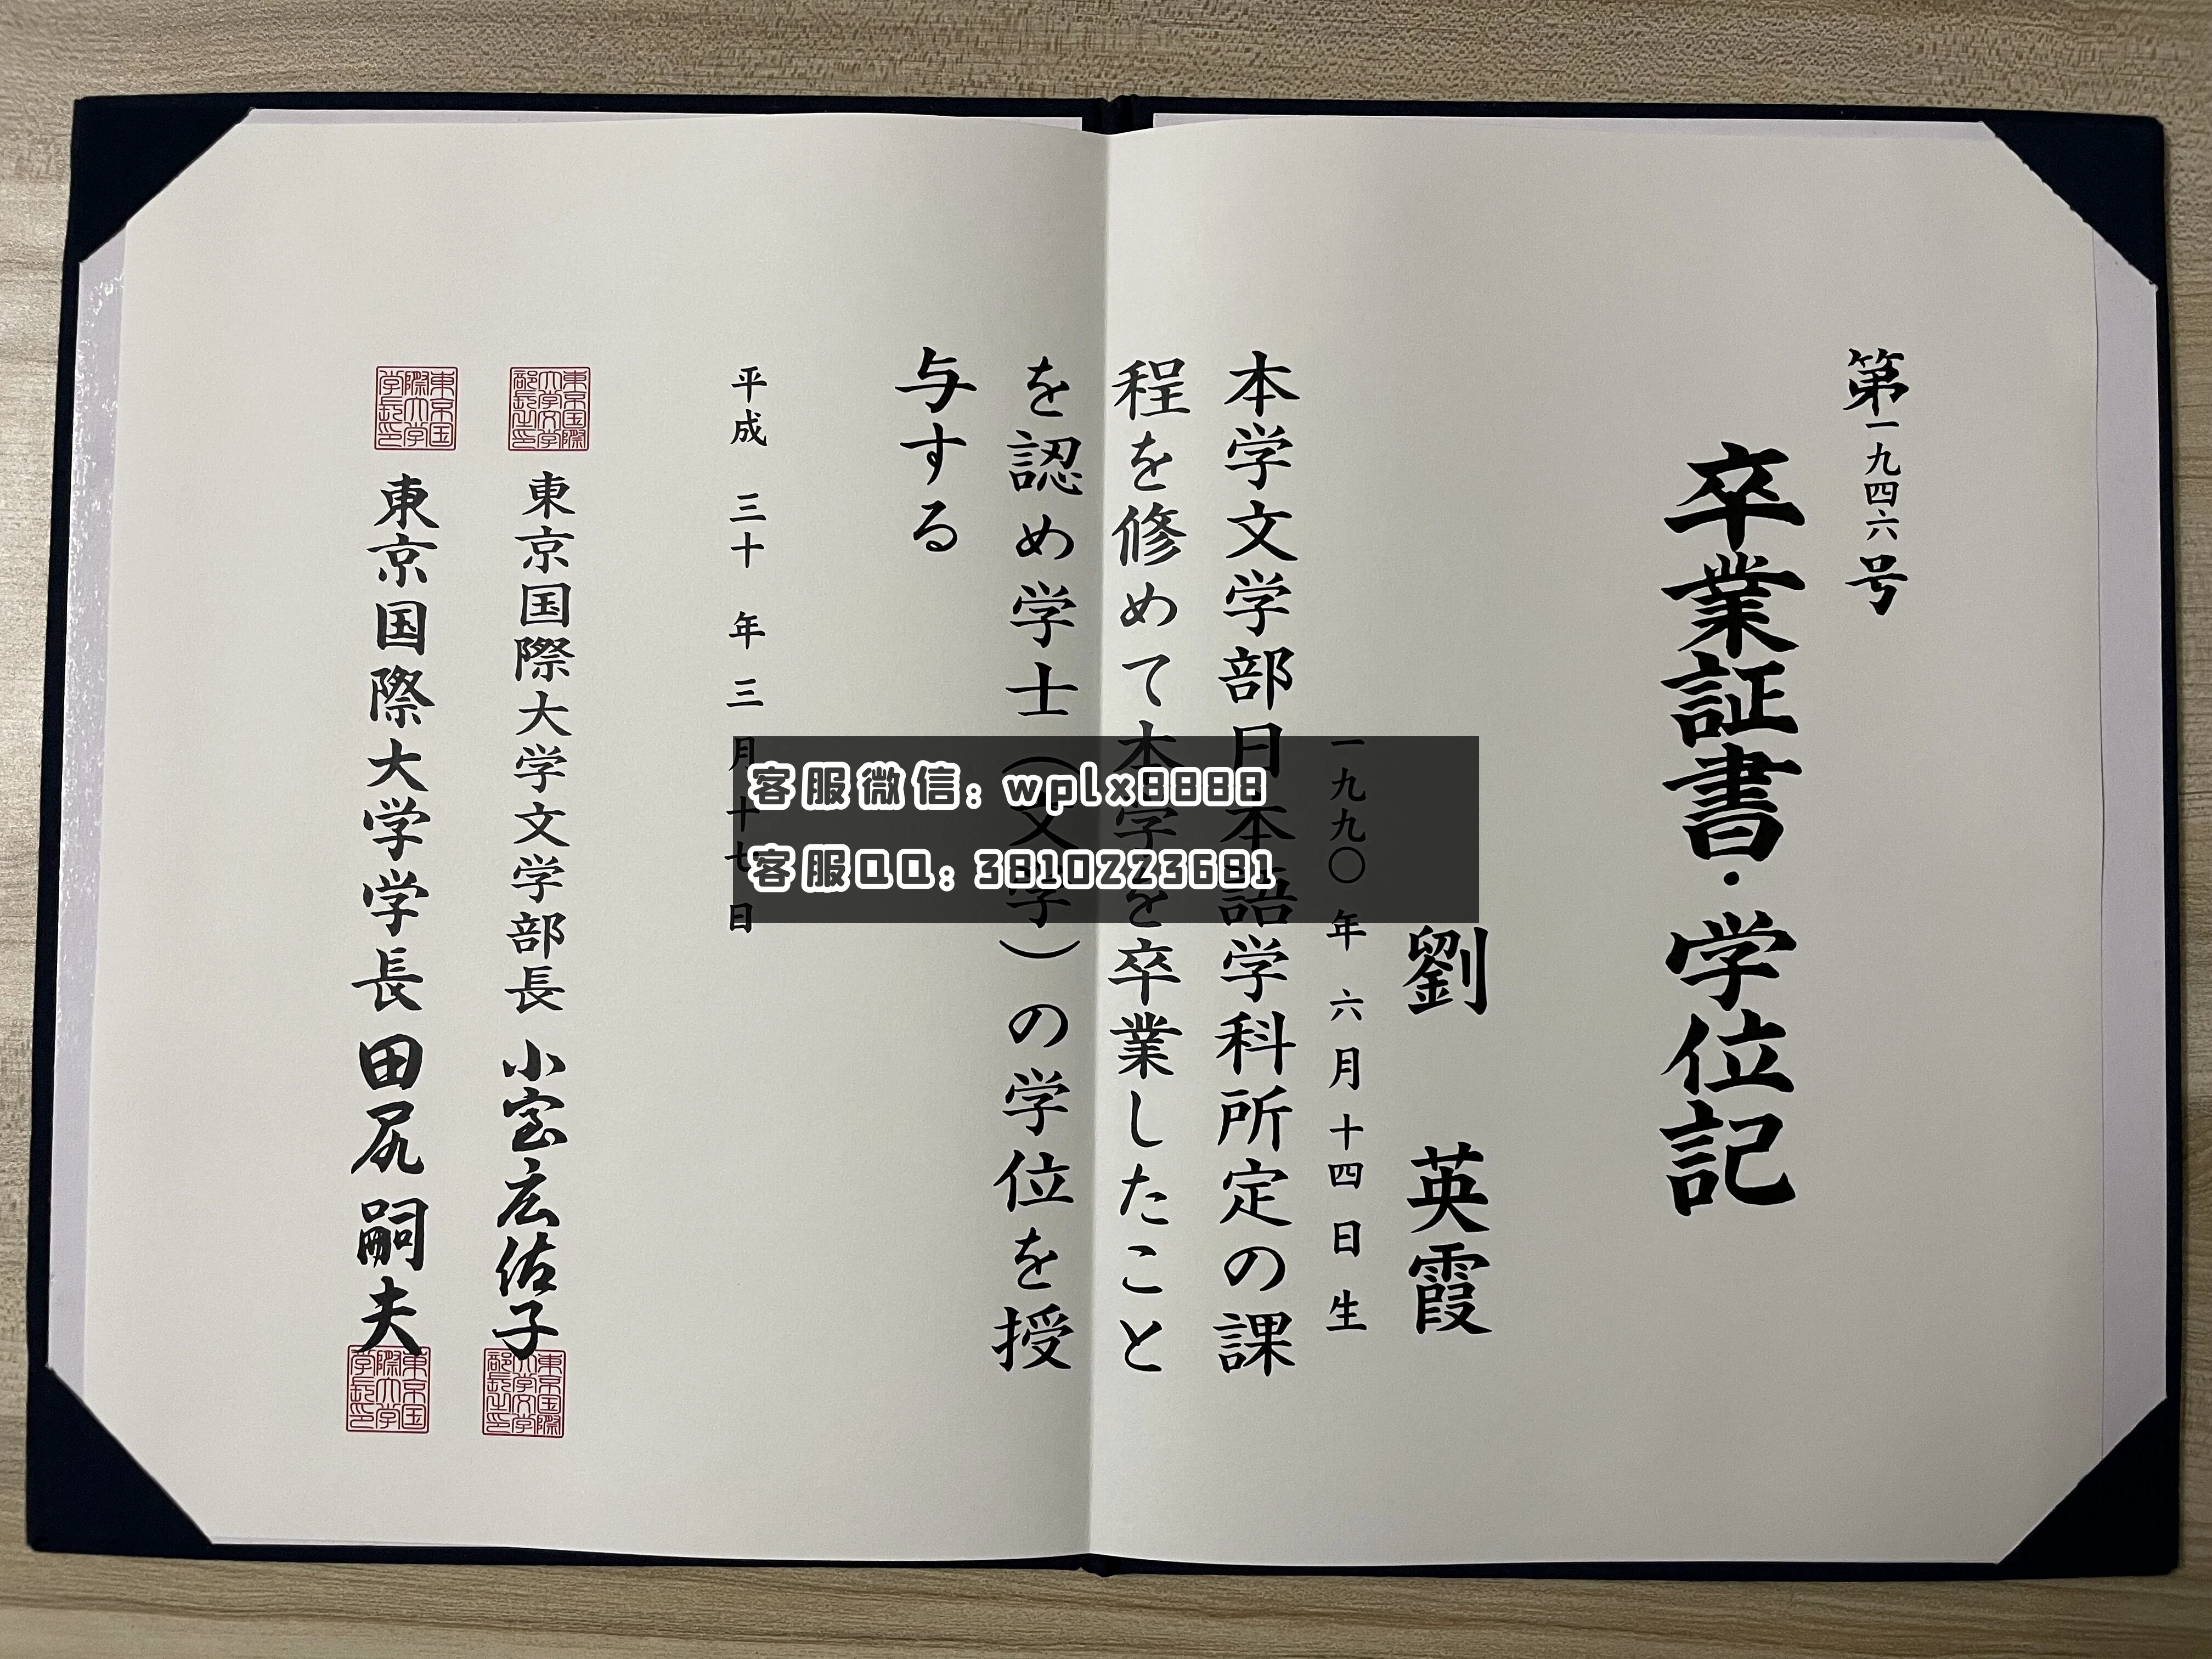 第一九四六号
卒業証書・学位記
劉　英霞
一九九〇年六月十四日生
本学文学部日本語学科所定の課
程を修めて本学を卒業したこと
を認め学士（文学）の学位を授
与する
平成三十年三月十七日
東京国際大学文学部長 小宮広佑子
東京国際大学学長 田尻嗣夫
東京国際大学文学部長之印
東京国際大学学長印
東京国際大学文学部長之印
東京国際大学学長印
客服微信: wplx8888
客服QQ: 3810223681